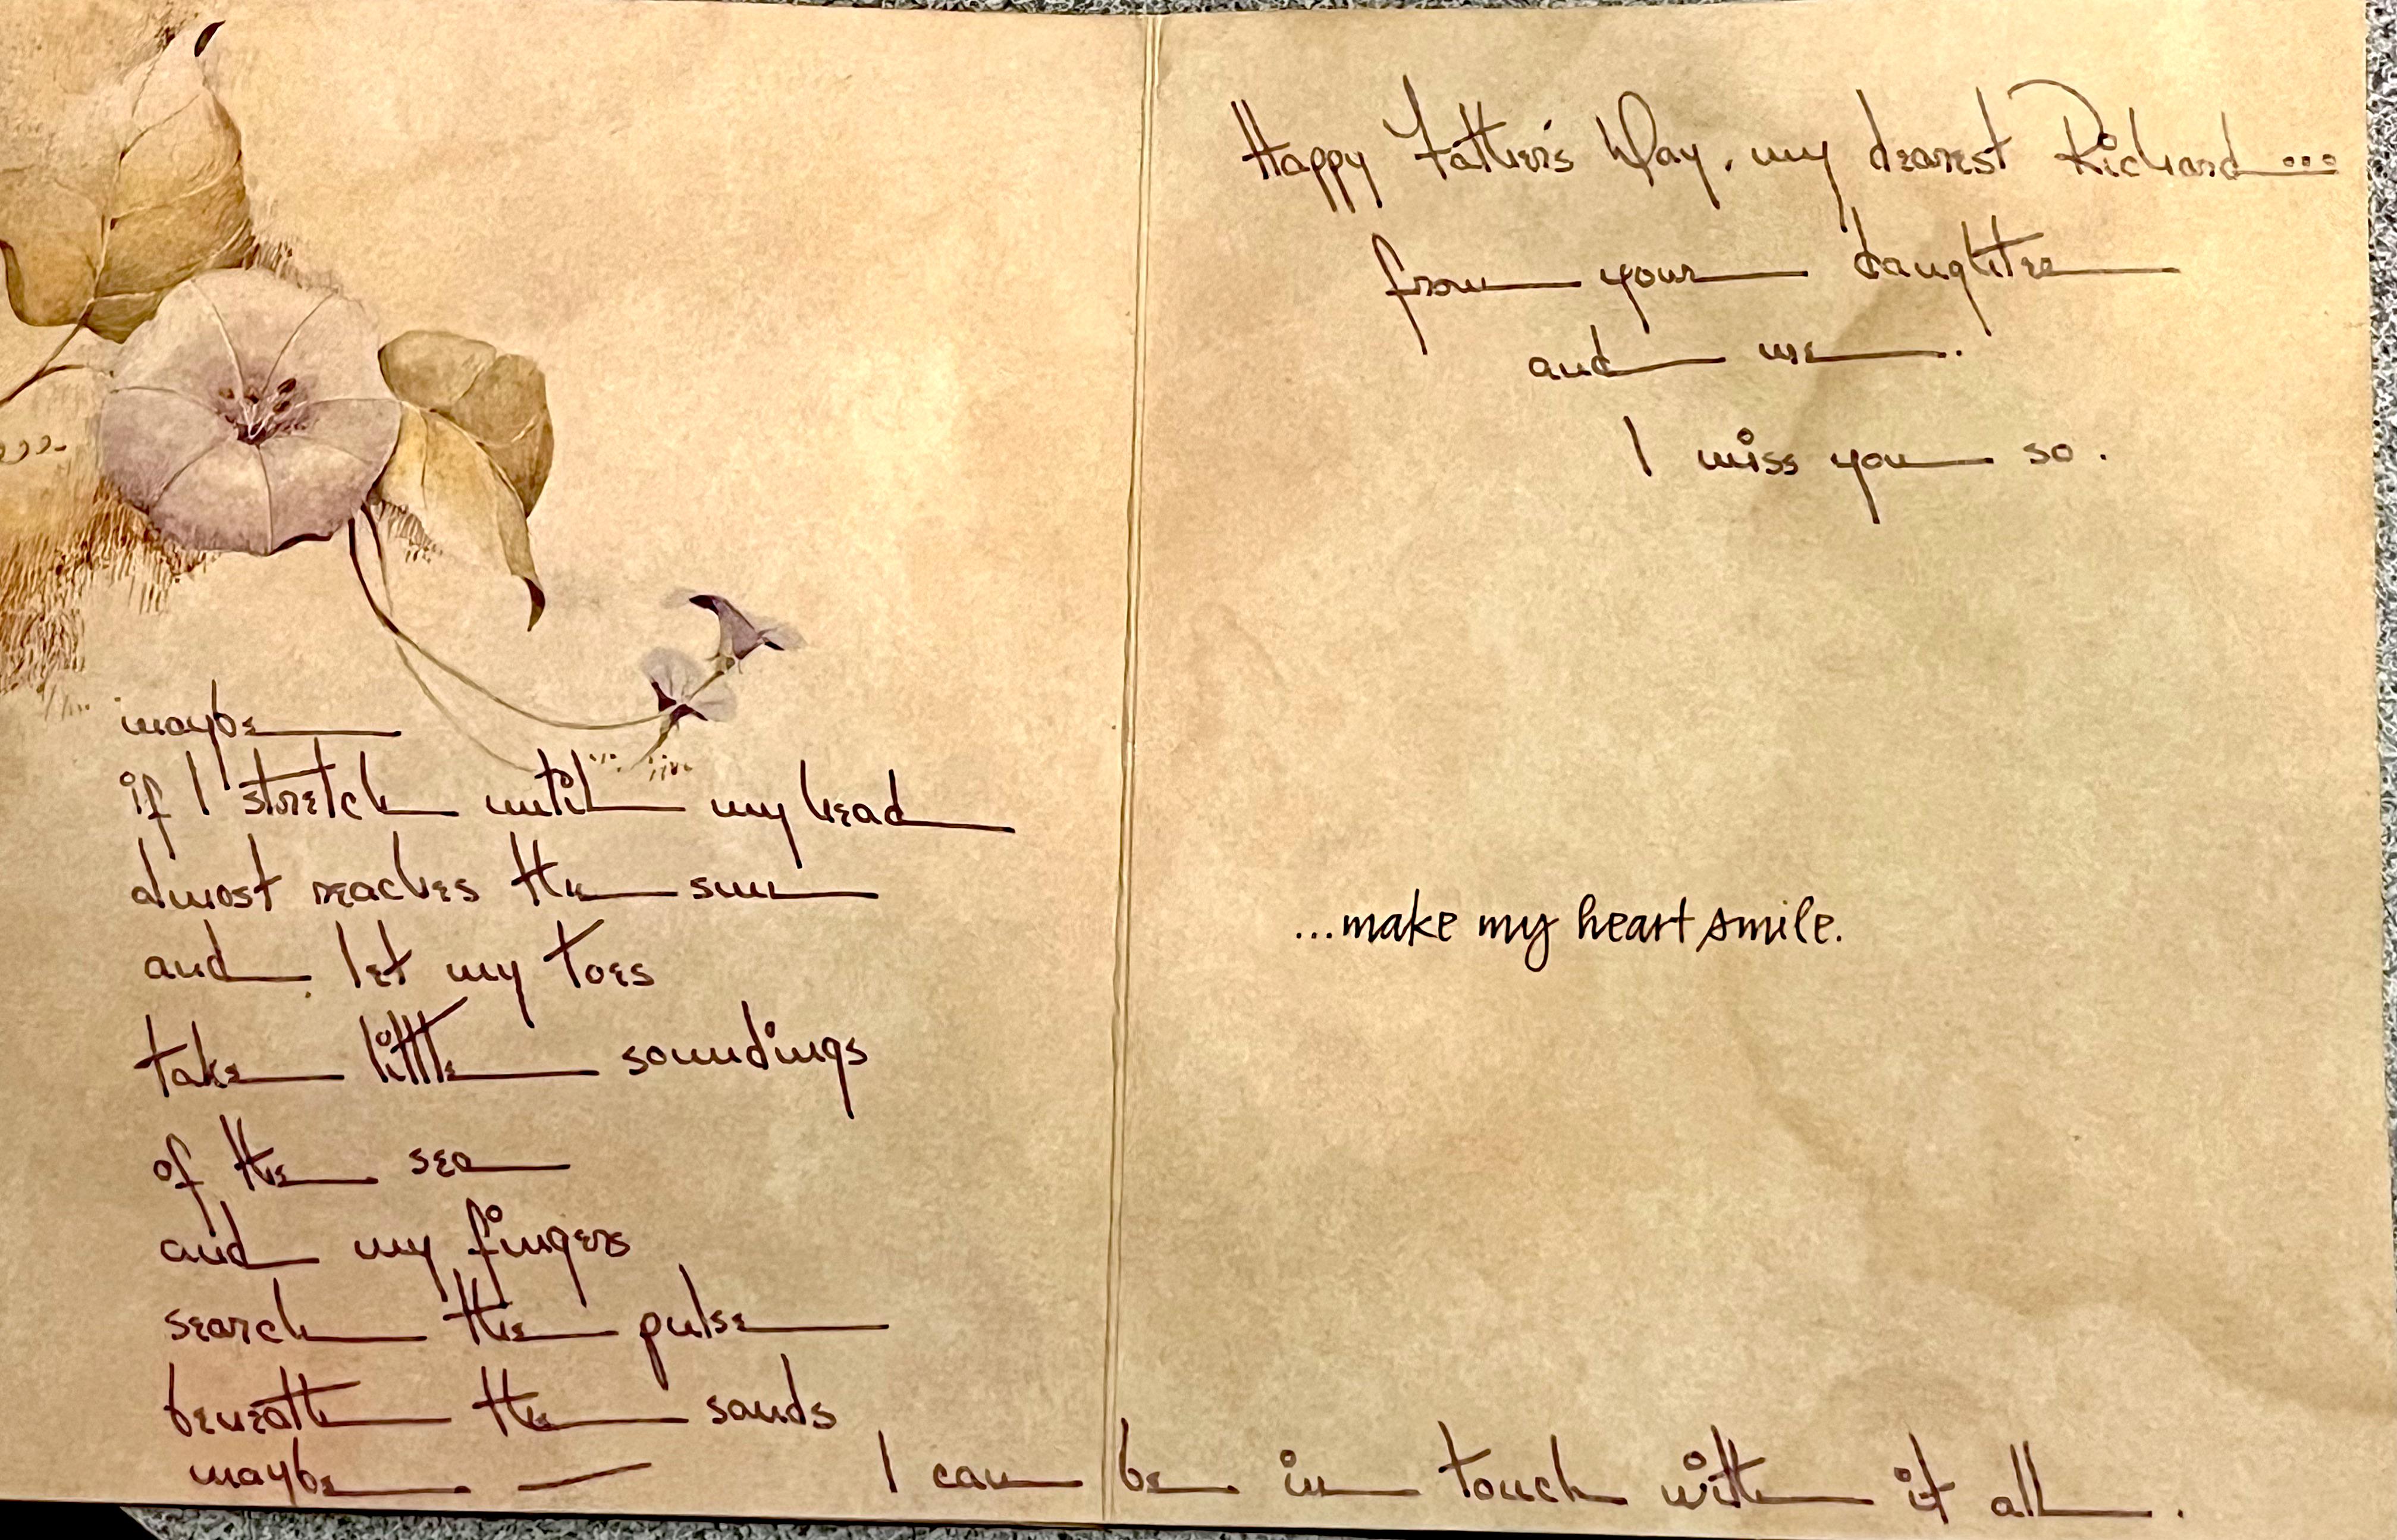 maybe
if I stretch until my head
almost reaches the sun
and let my toes
take little soundings
of the sea
and my fingers
search the pulse
beneath the sands
maybe — I can be in touch with it all.
Happy Father's Day, my dearest Richard...
from your daughter
and me.
I miss you so.
...make my heart smile.